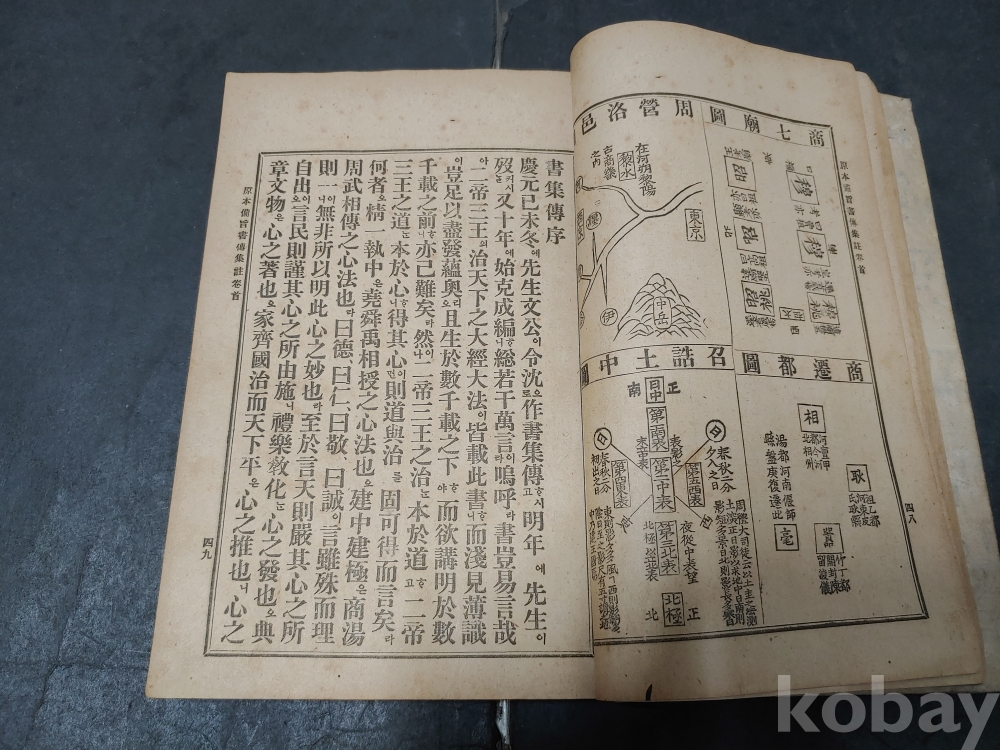 商七廟圖
周營洛邑
在河朔黎陽
古商
之內
黎水
東京
中岳
伊
北
西
商遷都圖
相
河亶甲
耿
囂
亳
湯都河南偃師
盤庚復遷此
召誥土中圖
正
南
日中
第南表
第一中表
第三北表
北極
正
北
表影之
第五西表
第四東表
春秋二分
夕入之日
春秋二分
初出之日
夜從中表望
北極
原本備旨書傳集註卷首
四八
書集傳序
慶元己未冬에先生文公이令沈으로作書集傳이시고明年에先生이
歿커시늘又十年에始克成編호니總若干萬言이라嗚呼라書豈易言哉
아二帝三王의治天下之大經大法이皆載此書로되而淺見薄識
이豈足以盡發蘊奧리오且生於數千載之下야而欲講明於數
千載之前니亦已難矣라然이나二帝三王之治本於道고二帝
三王之道本於心니得其心이면則道與治固可得而言矣라
何者오精一執中은堯舜禹相授之心法也오建中建極은商湯
周武相傳之心法也라曰德曰仁、曰敬、曰誠이言雖殊而理
則一이니無非所以明此心之妙也라至於言天則嚴其心之所
自出이오言民則謹其心之所由施니禮樂敎化心之發也오典
章文物은心之著也오家齊國治而天下平은心之推也니心之
原本備旨書傳集註卷首
四九
kobay